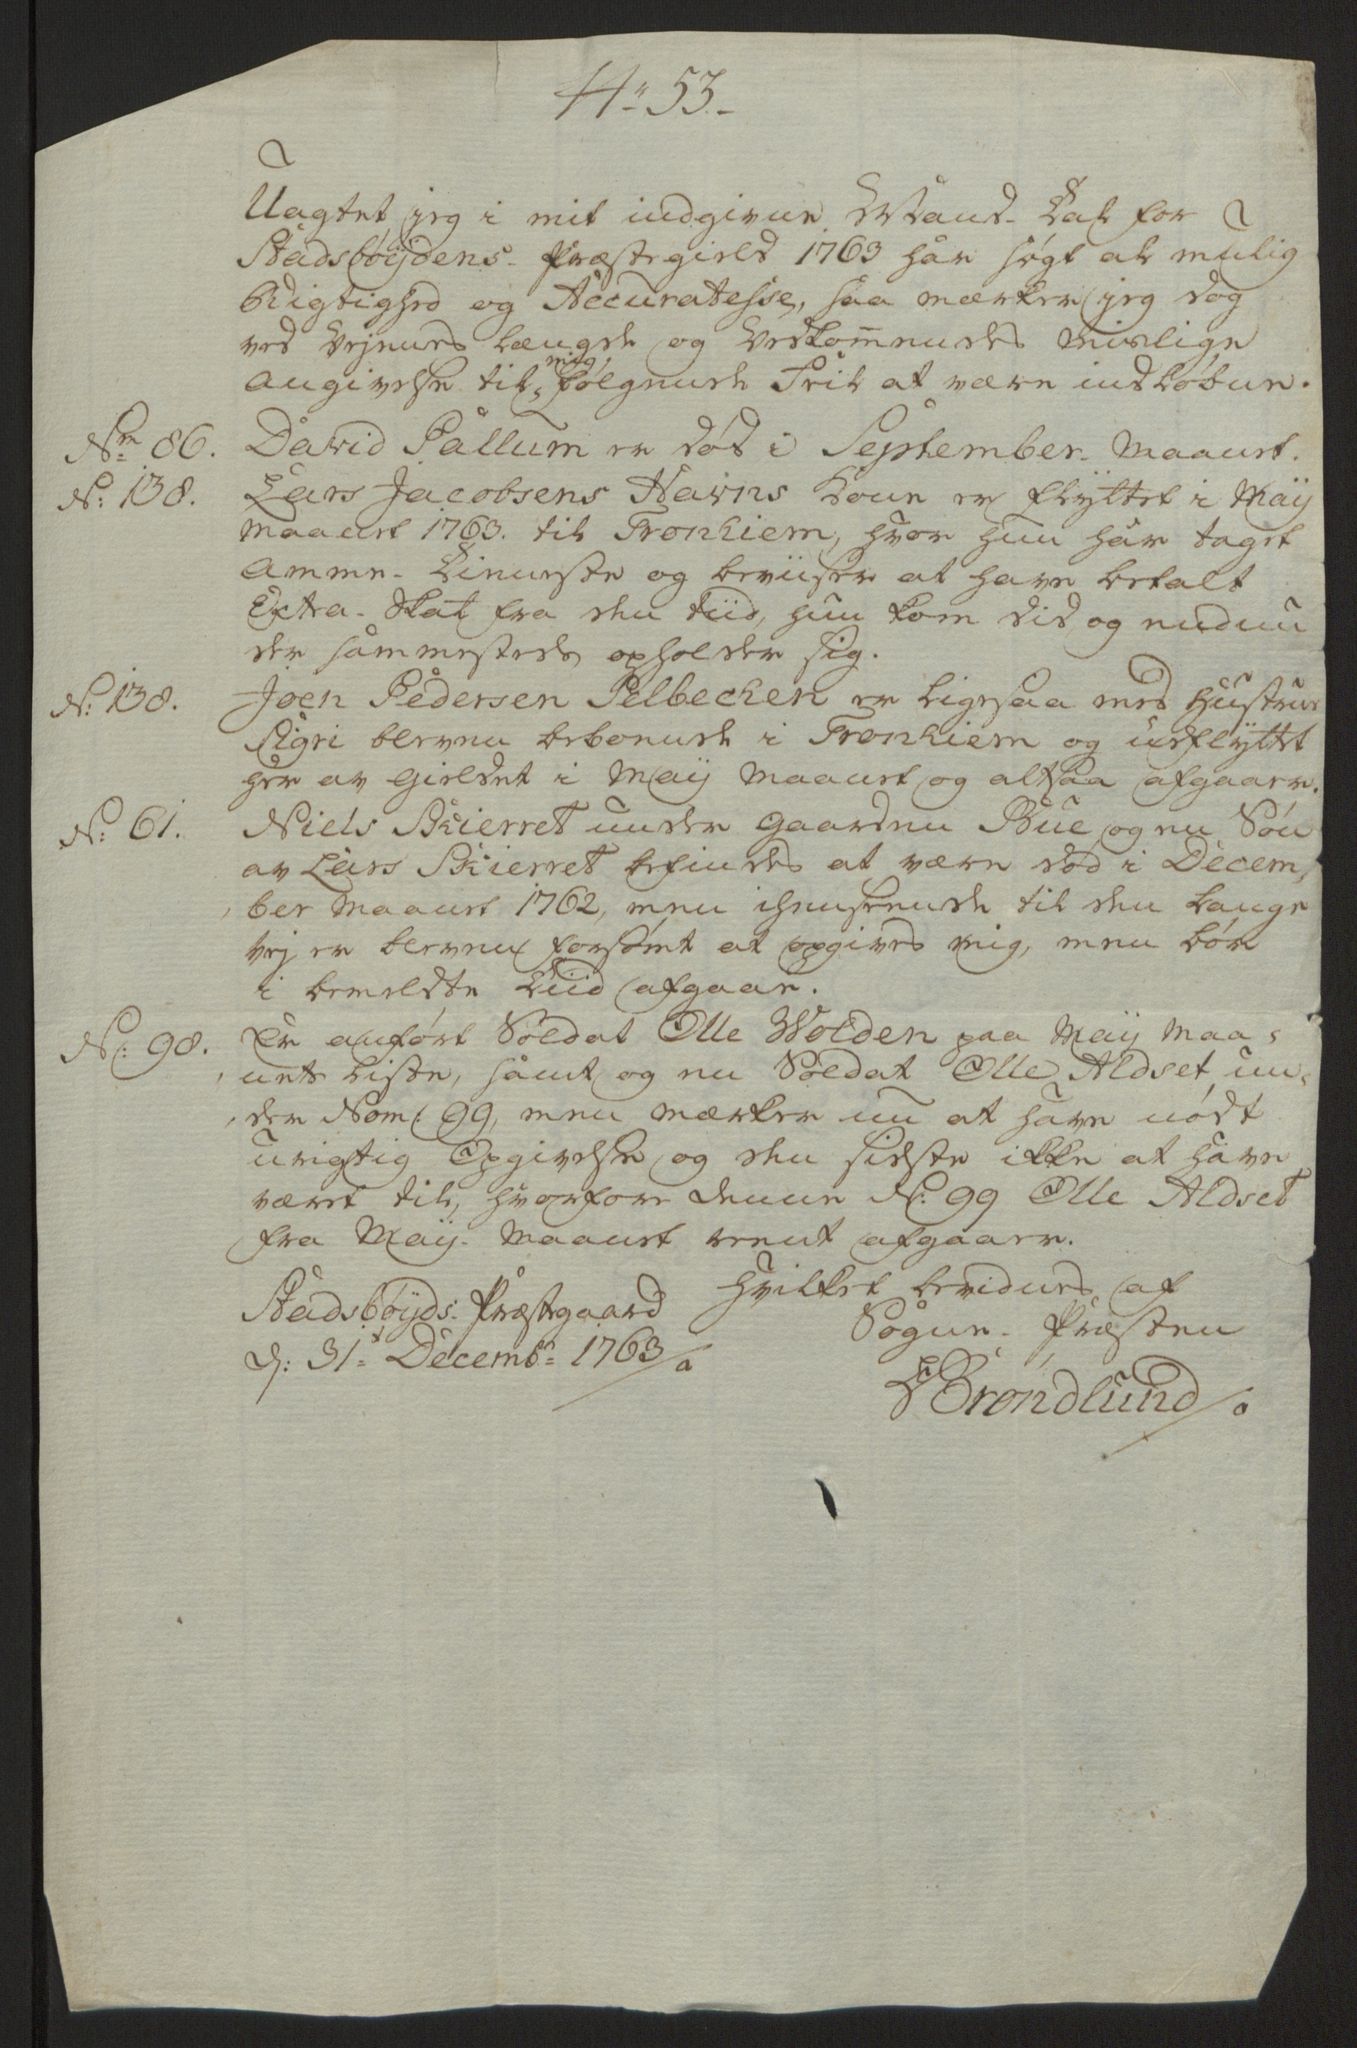 H: 53.
Uagtet jeg i mit indgivne Mand-Tal for
Stadsbøydens Præstegield 1763 har søgt al mulig
Rigtighed og Accuratesse, saa mærker jeg dog
ved Vejenes Længde og Vedkommendes
Angivelse til mig, følgende Feil at være indløbne.
Nr 86. David Pallum er død i September Maanet.
N: 138. Lars Jacobsens Navns Kone er flyttet i Maÿ
Maanet 1763. til Tronhiem, hvor hun har taget
Amme-Tieneste og beviiser at have betalt
Extra-Skat fra den tiid, hun kom did og endnu
der sammesteds opholder sig.
N: 138. Joen Pedersen Pelbechen er ligesaa med Hustrue
Sigri bleven beboende i Tronhiem og udflyttet
her av Gieldet i Maÿ Maanet og altsaa afgaaer.
N: 61. Niels Skierret under Gaarden Rue og en Søn
av Lars Skierret befindes at være død i Decem,
,ber Maanet 1762, men ihenseende til den lange
vej er bleven forsømt at opgives mig, men bør
i bemeldte Tiid afgaae.
N: 98. Er anført Soldat Olle Wolden paa Maÿ Maa,
,nets Liste, samt og en Soldat Olle Aldset un,
,der Nom: 99, men mærker nu at have nødt
urigtig Opgivelse og den sidste ikke at have
været til, hvorfore denne N: 99 Olle Aldset
fra Maÿ-Maanet reent afgaaer.
Hvilket bevidnes af
Stadsbøyds Præstegaard
Sogne-Præsten
d: 31t Decembr 1763/.
Brøndlund/.